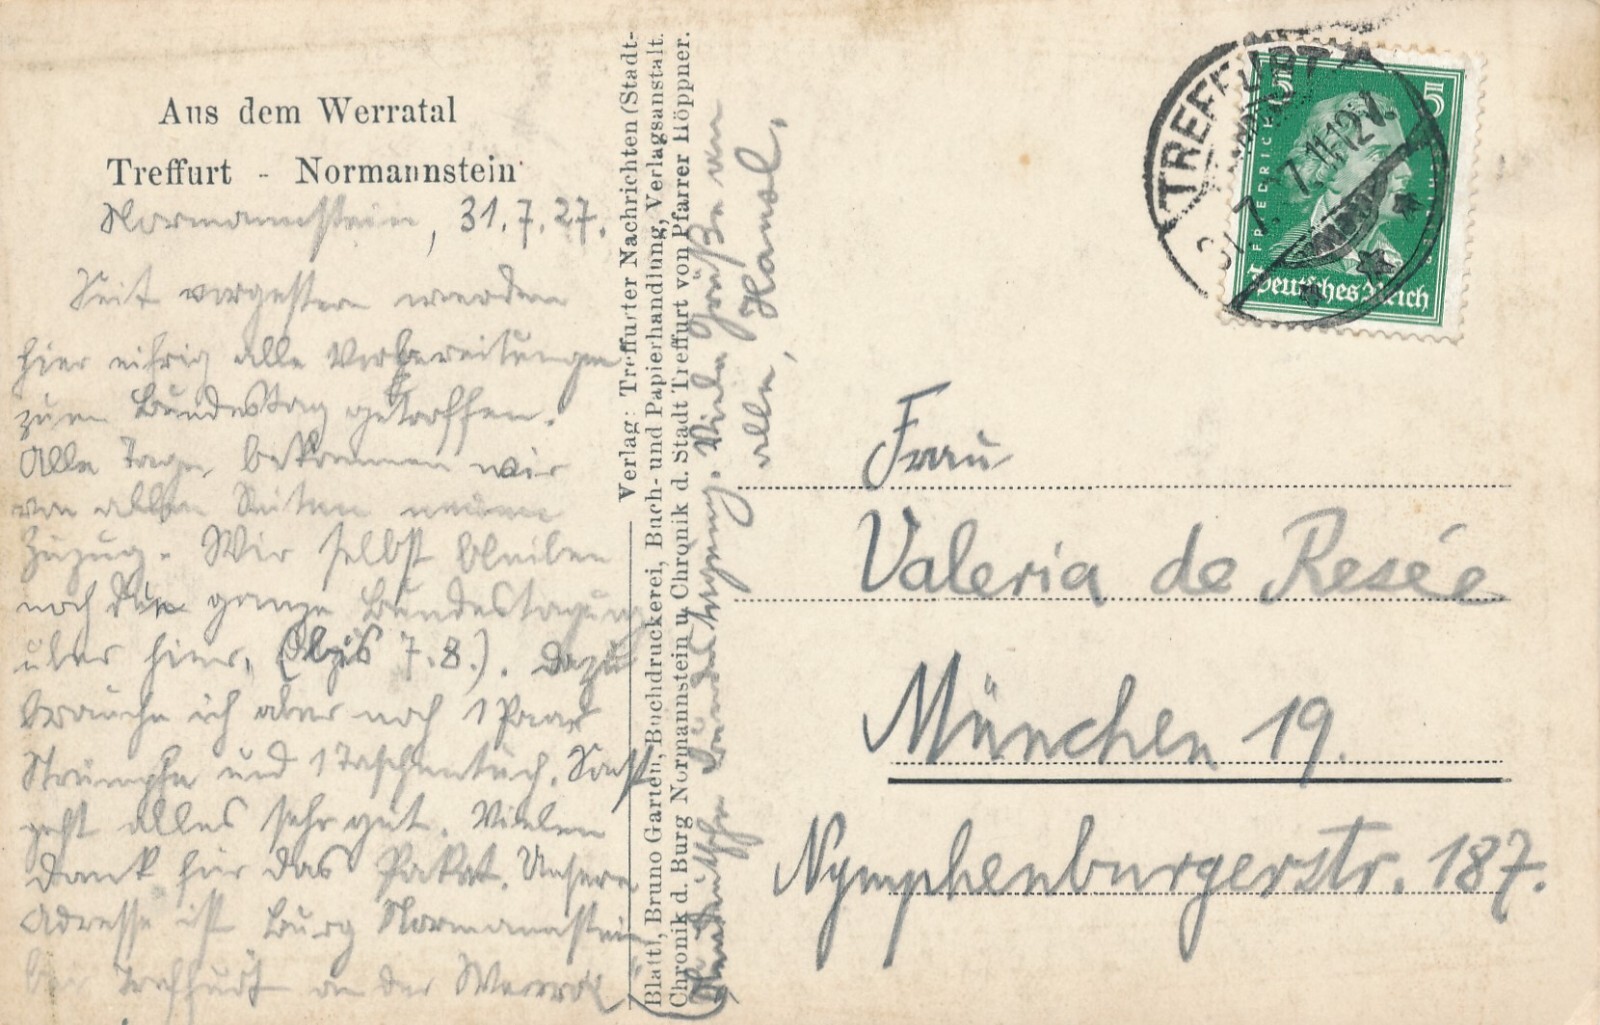 Aus dem Werratal
Treffurt - Normannstein
Normannstein, 31.7.27.
Seit vorgestern werden
hier eifrig alle Vorbereitungen
zum Bundestag getroffen.
Alle Tage bekommen wir
von allen Seiten neuen
Zuzug. Wir selbst bleiben
noch die ganze Bundestagung
über hier. (bis 7.8.). Dazu
brauche ich aber noch 1 Paar
Strümpfe und 1 Taschentuch. Sonst
geht alles sehr gut. Vielen
Dank für das Paket. Unsere
Adresse ist Burg Normannstein
bei Treffurt an der Werra
Bundestagung. Viele Grüße an
alle, Hansl.
Verlag: Treffurter Nachrichten (Stadt-
Blatt), Bruno Garten, Buchdruckerei, Buch- und Papierhandlung, Verlagsanstalt.
Chronik d. Burg Normannstein u. Chronik d. Stadt Treffurt von Pfarrer Höppner.
TREFFURT
31.7.27. 11-12 V.
5 5
FRIEDRICH
Deutsches Reich
Frau
Valeria de Resée
München 19.
Nymphenburgerstr. 187.